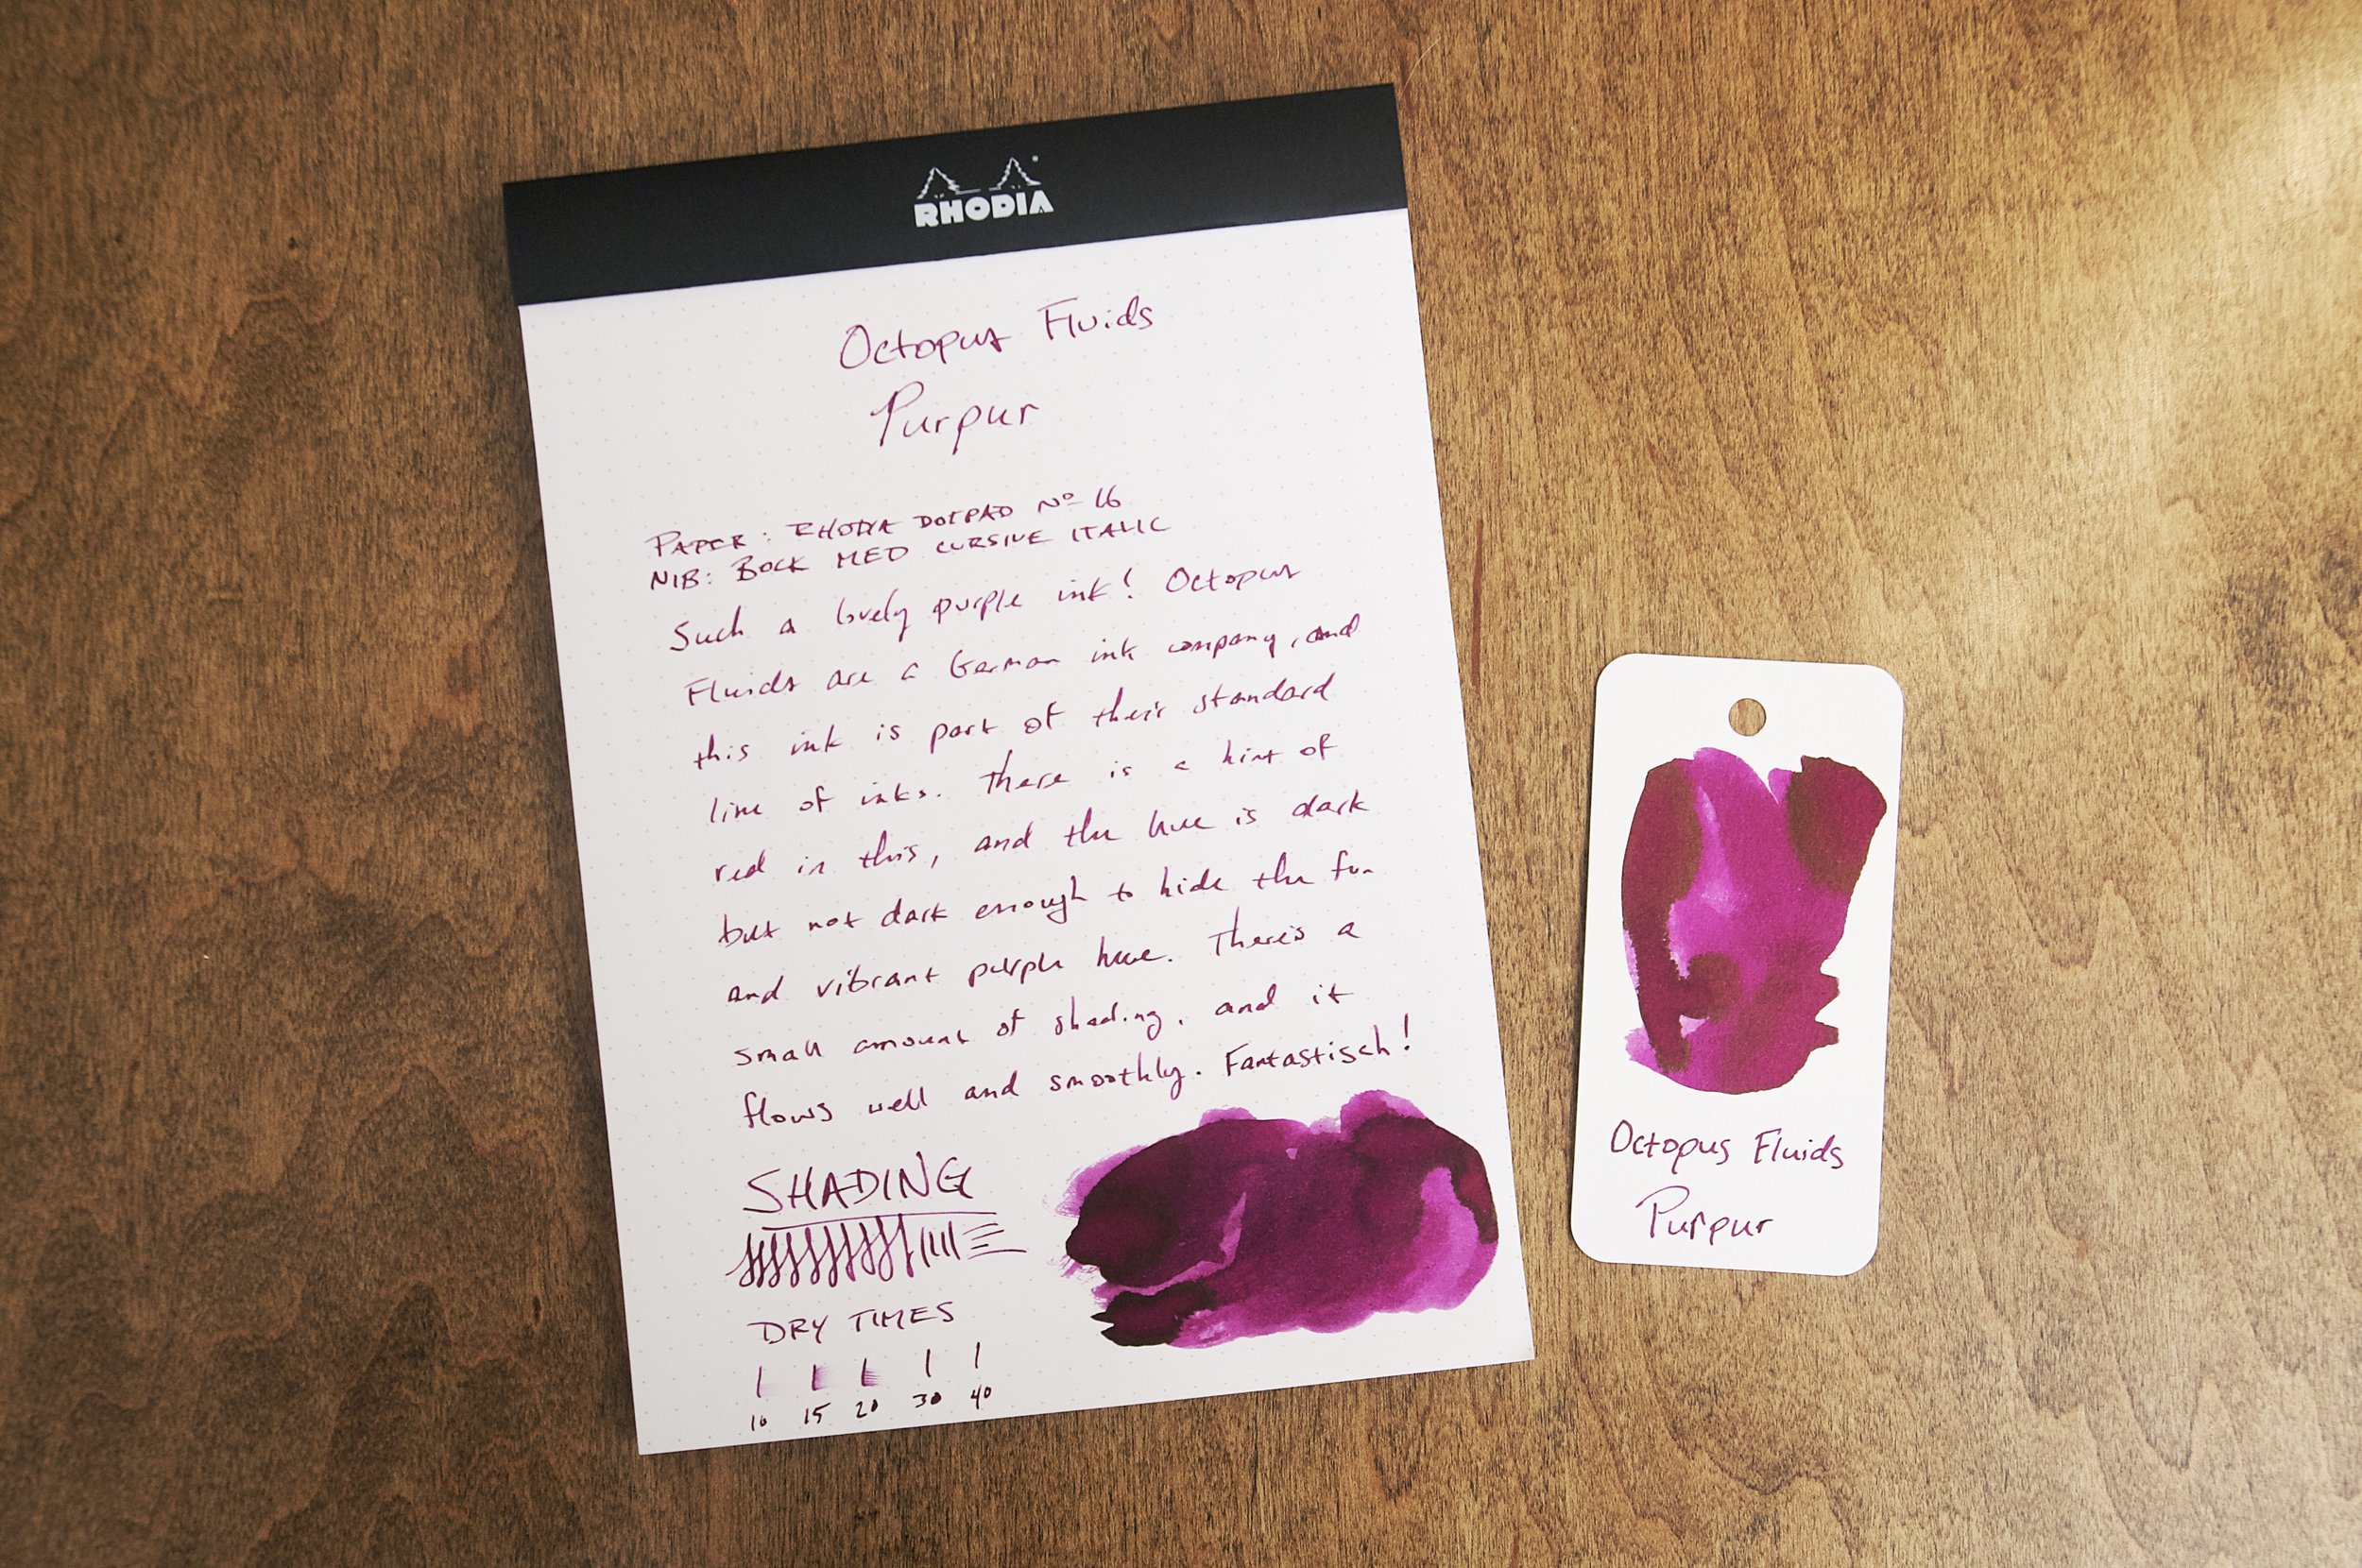 RHODIA
Octopus Fluids
Purpur
PAPER: RHODIA DOTPAD Nº 16
NIB: BOCK MED CURSIVE ITALIC
Such a lovely purple ink! Octopus
Fluids are a German ink company, and
this ink is part of their standard
line of inks. There is a hint of
red in this, and the hue is dark
but not dark enough to hide the fun
and vibrant purple hue. There's a
small amount of shading, and it
flows well and smoothly. Fantastisch!
SHADING
DRY TIMES
10 15 20 30 40
Octopus Fluids
Purpur